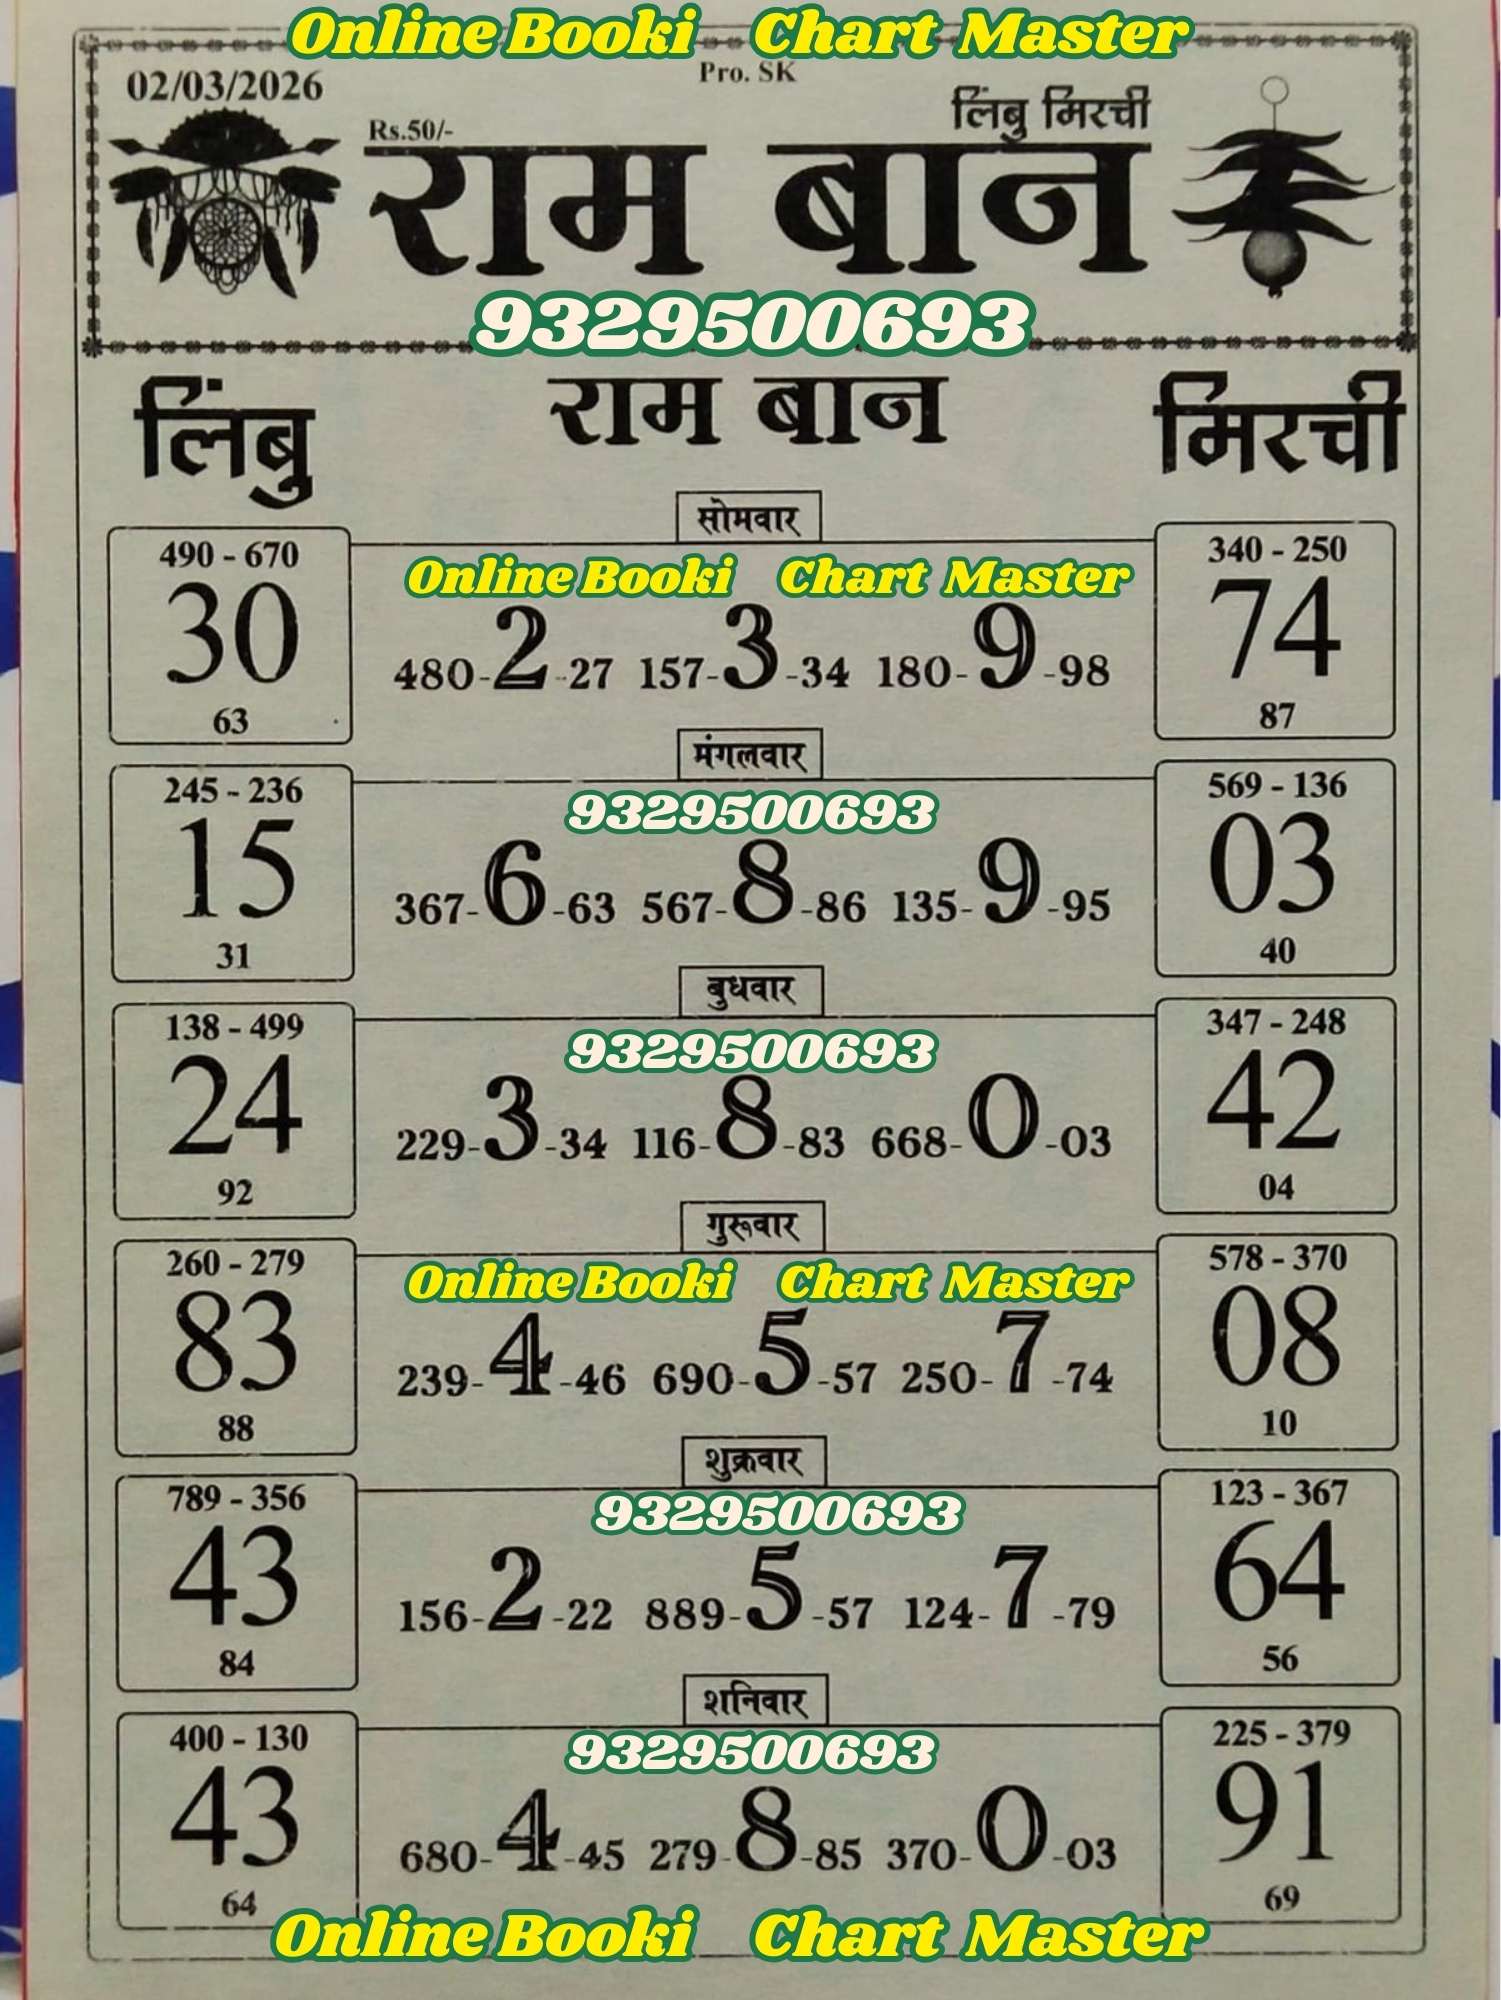 Online Booki Chart Master
Pro. SK
02/03/2026
Rs.50/-
लिंबु मिरची
राम बान
9329500693
लिंबु
राम बान
मिरची
सोमवार
490 - 670
30
63
Online Booki Chart Master
480-2-27 157-3-34 180-9-98
340 - 250
74
87
मंगलवार
245 - 236
15
31
9329500693
367-6-63 567-8-86 135-9-95
569 - 136
03
40
बुधवार
138 - 499
24
92
9329500693
229-3-34 116-8-83 668-0-03
347 - 248
42
04
गुरूवार
260 - 279
83
88
Online Booki Chart Master
239-4-46 690-5-57 250-7-74
578 - 370
08
10
शुक्रवार
789 - 356
43
84
9329500693
156-2-22 889-5-57 124-7-79
123 - 367
64
56
शनिवार
400 - 130
43
64
9329500693
680-4-45 279-8-85 370-0-03
225 - 379
91
69
Online Booki Chart Master